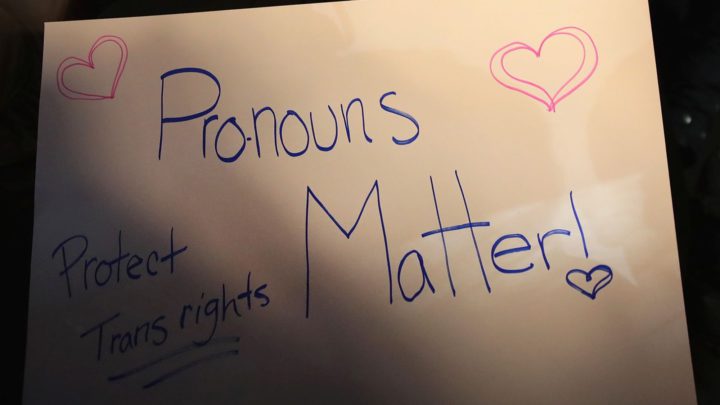 Pronouns
Matter!
Protect
Trans rights